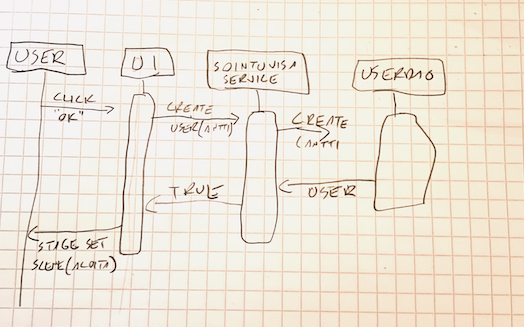 USER
UI
SOINTUVISA
SERVICE
USERDAO
CLICK
"OK"
CREATE
USER(ANTTI)
CREATE
(ANTTI
USER
TRUE
STAGE SET
SCENE(ALOITA)